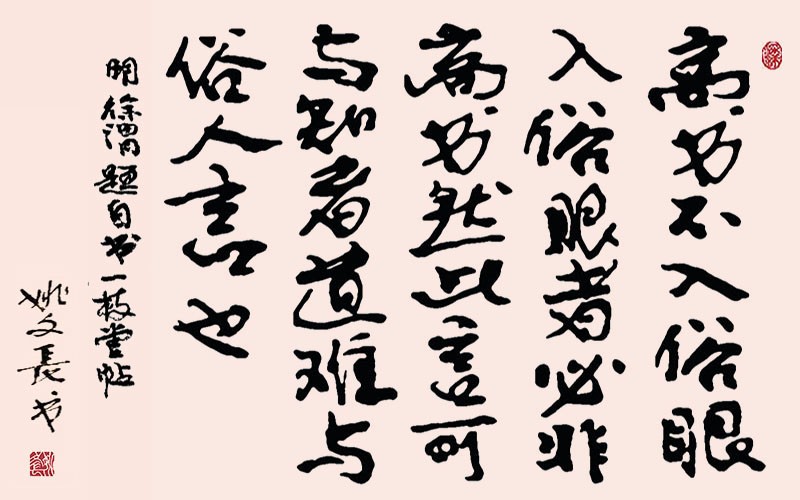 高书不入俗眼
入俗眼者必非
高书然此言可
与知者道难与
俗人言也
明徐渭题自书一枝堂帖
姚文长书